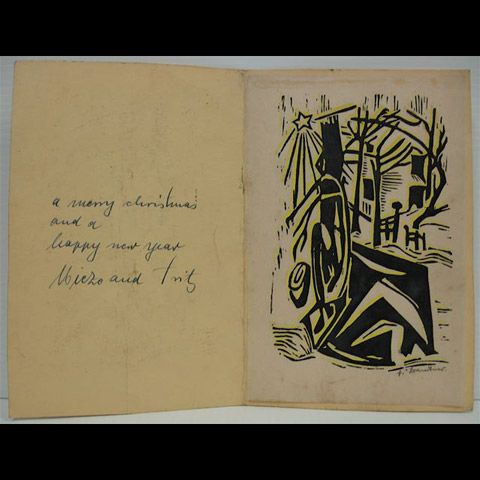 a merry christmas
and a
happy new year
Miezo and Fritz